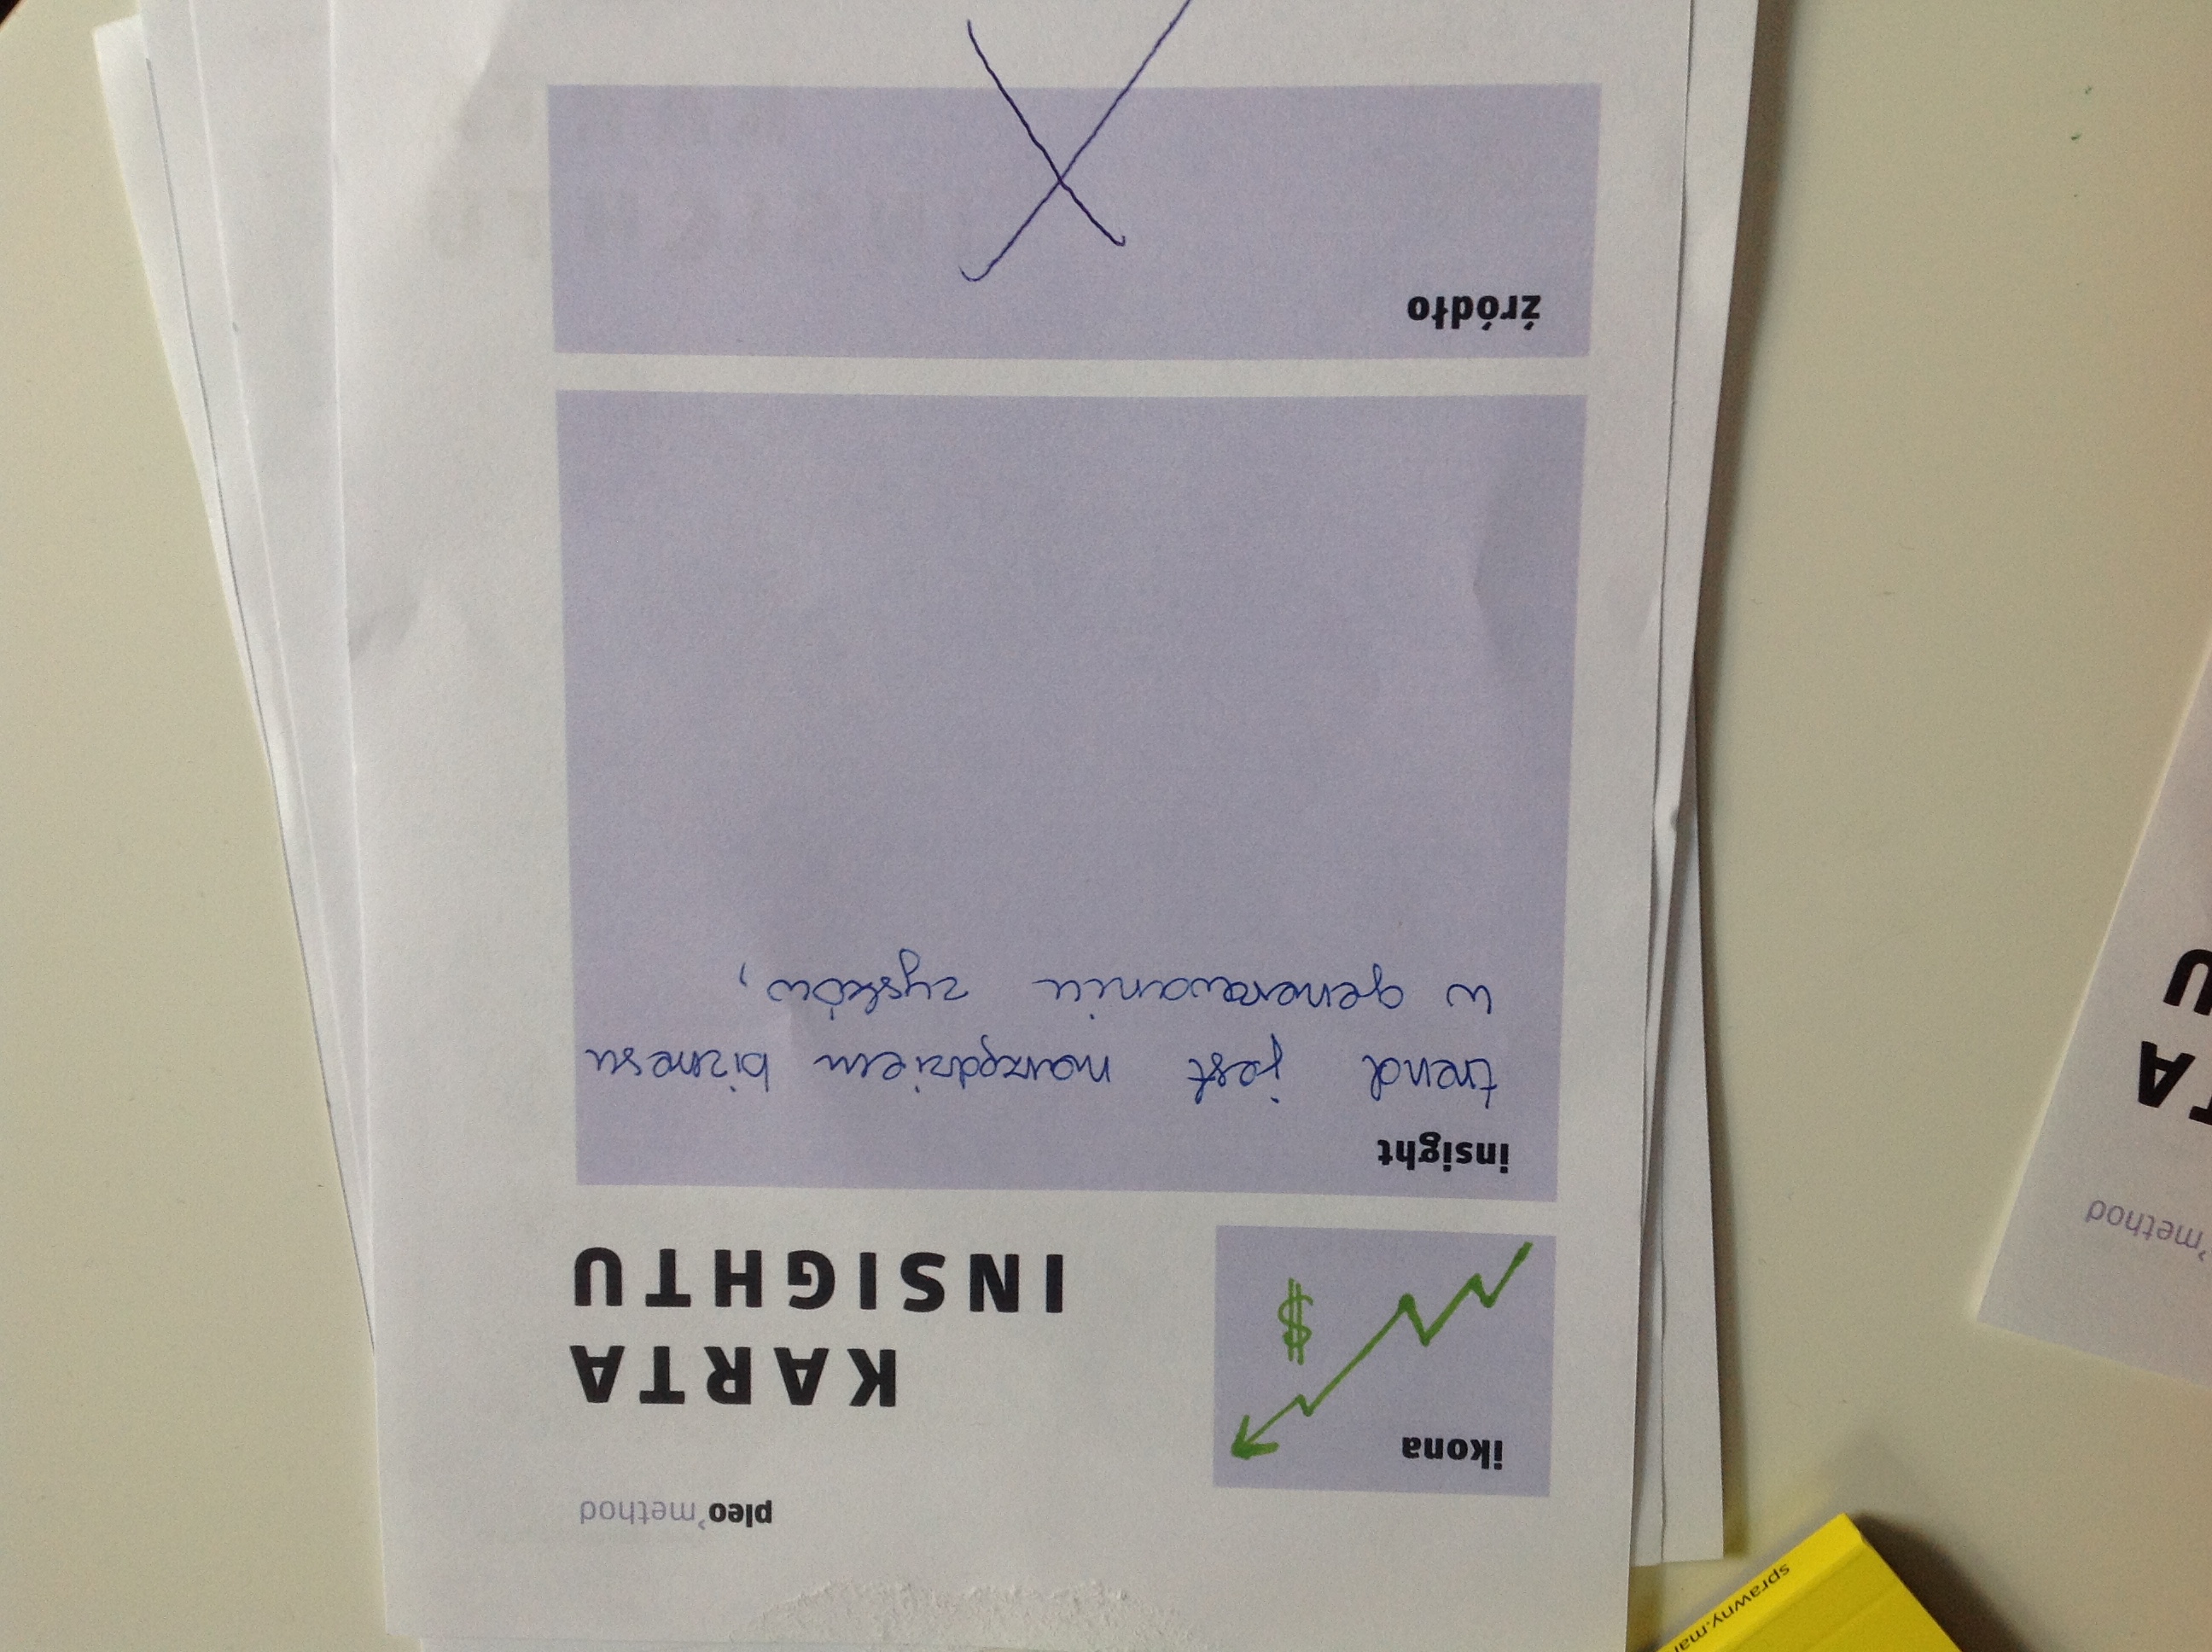 sprawny.mar
pleo'method
ikona
$
KARTA
INSIGHTU
insight
trend jest narzędziem biznesu
w generowaniu zysków,
źródło
'method
TA
U